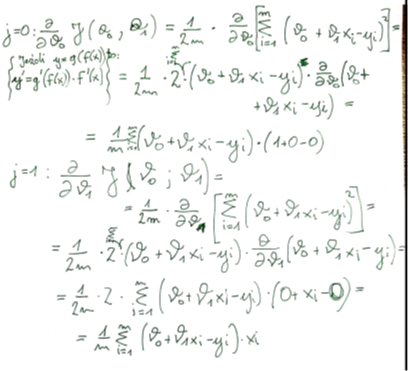 j=0: ∂/∂ϑ₀ J(ϑ₀, ϑ₁) = 1/2m · ∂/∂ϑ₀ [∑ᵢ₌₁ᵐ (ϑ₀ + ϑ₁xᵢ - yᵢ)²] =
{Jeżeli y = g(f(x)) to:
y' = g'(f(x)) · f'(x)} = 1/2m · 2 ∑ᵢ₌₁ᵐ (ϑ₀ + ϑ₁xᵢ - yᵢ) · ∂/∂ϑ₀ (ϑ₀ +
+ ϑ₁xᵢ - yᵢ) =
= 1/m ∑ᵢ₌₁ᵐ (ϑ₀ + ϑ₁xᵢ - yᵢ) · (1+0-0)
j=1: ∂/∂ϑ₁ J(ϑ₀; ϑ₁) =
= 1/2m · ∂/∂ϑ₁ [∑ᵢ₌₁ᵐ (ϑ₀ + ϑ₁xᵢ - yᵢ)²] =
= 1/2m · 2 ∑ᵢ₌₁ᵐ (ϑ₀ + ϑ₁xᵢ - yᵢ) · ∂/∂ϑ₁ (ϑ₀ + ϑ₁xᵢ - yᵢ) =
= 1/2m · 2 · ∑ᵢ₌₁ᵐ (ϑ₀ + ϑ₁xᵢ - yᵢ) · (0 + xᵢ - 0) =
= 1/m ∑ᵢ₌₁ᵐ (ϑ₀ + ϑ₁xᵢ - yᵢ) · xᵢ